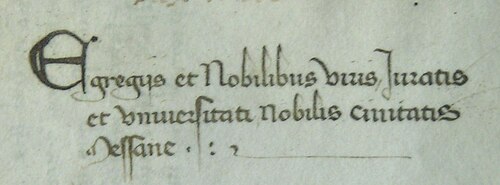 Egregijs et Nobilibus viris Juratis
et vniuersitati Nobilis Ciuitatis
Messane . : ,